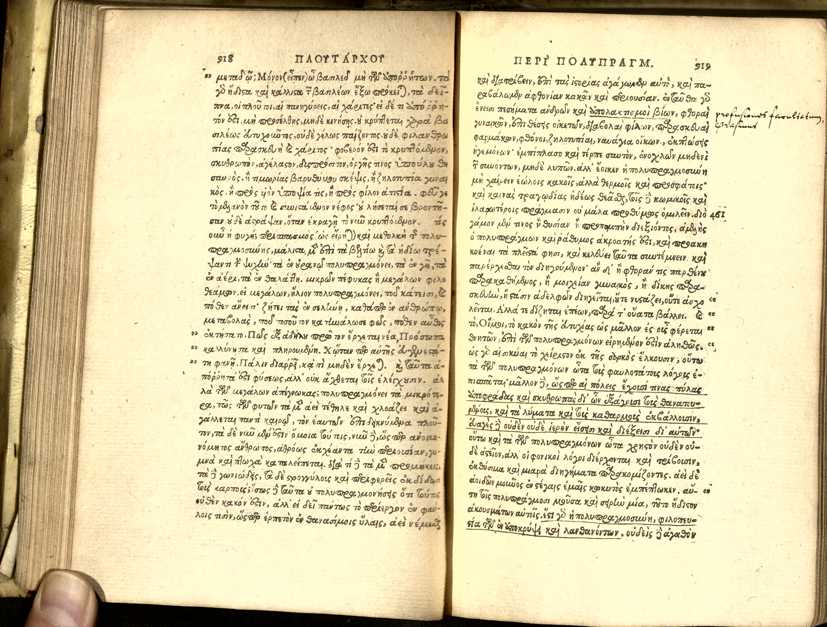 918 ΠΛΟΥΤΑΡΧΟΥ
μεταδῶ; Μόνον (εἶπεν) ὦ βασιλεῦ μὴ τῶν ἀπορρήτων. τὰ
γὰρ ἥδιστα καὶ κάλλιστα τῶν βασιλέων ἔξω πρόκειται, τὰ δεῖ-
πνα, οἱ πλοῦτοι, αἱ πανηγύρεις, αἱ χάριτες· εἰ δέ τι ἀπόρρη-
τόν ἐστι, μὴ προσέλθῃς, μηδὲ κινήσῃς. οὐ κρύπτεται χαρὰ βα-
σιλέως εὐτυχοῦντος, οὐδὲ γέλως παίζοντος, οὐδὲ φιλανθρω-
πίας παρασκευὴ καὶ χάριτος· φοβερόν ἐστι τὸ κρυπτόμενον,
σκυθρωπὸν, ἀγέλαστον, δυσπρόσιτον, ὀργῆς τινος ὑπούλου θη-
σαυρὸς, ἢ τιμωρίας βαρυθύμου σκέψις, ἢ ζηλοτυπία γυναι-
κὸς, ἢ πρὸς υἱὸν ὑποψία τις, ἢ πρὸς φίλον ἀπιστία. φεῦγε
τὸ μελανὸν τοῦτο καὶ συνιστάμενον νέφος· οὐ λήσεταί σε βροντῆ-
σαν οὐδὲ ἀστράψαν, ὅταν ἐκραγῇ τὸ νῦν κρυπτόμενον. τίς
οὖν ἡ φυγή; περισπασμὸς (ὡς εἴρηται) καὶ μεθολκὴ τῆς πολυ-
πραγμοσύνης, μάλιστα μὲν ἐπὶ τὰ βελτίω καὶ τὰ ἡδίω τρέ-
ψαντι τὴν ψυχήν. τὰ ἐν οὐρανῷ πολυπραγμόνει, τὰ ἐν γῇ, τὰ
ἐν ἀέρι, τὰ ἐν θαλάττῃ. μικρῶν πέφυκας ἢ μεγάλων φιλο-
θεάμων; εἰ μεγάλων, ἥλιον πολυπραγμόνει, ποῦ κάτεισι, καὶ
πόθεν ἄνεισι· ζήτει τὰς ἐν σελήνῃ, καθάπερ ἐν ἀνθρώπῳ,
μεταβολὰς, ποῦ τοσοῦτον κατηνάλωσε φῶς, πόθεν αὖθις
ἐκτήσατο. Πῶς ἐξ ἀδήλου πρῶτον ἔρχεται νέα, Πρόσωπα
καλλύνουσα καὶ πληρουμένη. Χὤταν περ αὑτῆς εὐγενεστά-
τη φανῇ, Πάλιν διαρρεῖ, κἀπὶ μηδὲν ἔρχεται. καὶ ταῦτα ἀ-
πόρρητά ἐστι φύσεως, ἀλλ' οὐκ ἄχθεται τοῖς ἐλέγχουσιν. ἀλ-
λὰ τῶν μεγάλων ἀπέγνωκας; πολυπραγμόνει τὰ μικρότε-
ρα, πῶς τῶν φυτῶν τὰ μὲν ἀεὶ τέθηλε καὶ χλοάζει καὶ ἀ-
γάλλεται παντὶ καιρῷ, τὸν ἑαυτῶν ἐπιδεικνύμενα πλοῦ-
τον, τὰ δὲ νῦν μέν ἐστιν ὅμοια τούτοις, νῦν δὲ, ὥσπερ ἀνοικο-
νόμητος ἄνθρωπος, ἀθρόως ἐκχέαντα τὴν περιουσίαν, γυ-
μνὰ καὶ πτωχὰ καταλείπεται. διὰ τί δὲ τὰ μὲν προμήκεις,
τὰ δὲ γωνιώδεις, τὰ δὲ στρογγύλους καὶ περιφερεῖς ἐκδίδωσι
τοὺς καρπούς; ἴσως δὲ ταῦτα οὐ πολυπραγμονήσεις ὅτι τούτοις
οὐθὲν κακόν ἐστιν. ἀλλ' εἰ δεῖ πάντως τὸ περίεργον ἐν φαύ-
λοις τισὶν, ὥσπερ ἑρπετὸν ἐν θανασίμοις ὕλαις, ἀεὶ νέμεσθαι
ΠΕΡΙ ΠΟΛΥΠΡΑΓΜ. 919
καὶ διατρίβειν, ἐπὶ τὰς ἱστορίας ἀγάγωμεν αὐτὸ, καὶ πα-
ραβάλωμεν ἀφθονίαν κακῶν καὶ περιουσίαν. ἐνταῦθα γὰρ
ἔνεισι πεσήματα ἀνδρῶν καὶ ὑπολακτισμοὶ βίων, φθοραὶ
γυναικῶν, ἐπιθέσεις οἰκετῶν, διαβολαὶ φίλων, παρασκευαὶ
φαρμάκων, φθόνοι, ζηλοτυπίαι, ναυάγια οἴκων, ἐκπτώσεις
ἡγεμόνων· ἐμπίπλασο καὶ τέρπε σαυτὸν, ἐνοχλῶν μηδένα
τῶν συνόντων, μηδὲ λυπῶν. ἀλλ' ἔοικεν ἡ πολυπραγμοσύνη
μὴ χαίρειν ἑώλοις κακοῖς, ἀλλὰ θερμοῖς καὶ προσφάτοις·
καὶ καιναῖς τραγῳδίαις ἡδέως θεᾶσθαι, τοῖς δὲ κωμικοῖς καὶ
ἱλαρωτέροις πράγμασιν οὐ μάλα προθύμως ὁμιλεῖν. διὸ
γάμον μέν τινος ἢ θυσίαν ἢ προπομπὴν διεξιόντος, ἀμελὴς
ὁ πολυπράγμων καὶ ῥάθυμος ἀκροατής ἐστι, καὶ προακη-
κοέναι τὰ πλεῖστά φησι, καὶ κελεύει ταῦτα συντέμνειν καὶ
παρέρχεσθαι τὸν διηγούμενον· ἂν δὲ ἢ φθοράν τις παρθένου
παρακαθήμενος, ἢ μοιχείαν γυναικὸς, ἢ δίκης παρα-
σκευὴν, ἢ στάσιν ἀδελφῶν διηγῆται, οὔτε νυστάζει, οὔτε ἀσχο-
λεῖται. Ἄλλα τε δίζηται ἐπέων, παρά τ' οὔατα βάλλει. καὶ
τὸ, Οἴμοι, τὸ κακὸν τῆς εὐτυχίας ὡς μᾶλλον ἐς οὖς φέρεται
θνητῶν, ἐπὶ τῶν πολυπραγμόνων εἰρημένον ἐστὶν ἀληθῶς.
ὡς γὰρ αἱ σικύαι τὸ χείριστον ἐκ τῆς σαρκὸς ἕλκουσιν, οὕτω
τὰ τῶν πολυπραγμόνων ὦτα τοὺς φαυλοτάτους λόγους ἐ-
πισπᾶται· μᾶλλον δὲ, ὥσπερ αἱ πόλεις ἔχουσί τινας πύλας
ἀποφράδας καὶ σκυθρωπὰς δι' ὧν ἐξάγουσι τοὺς θανατου-
μένους, καὶ τὰ λύματα καὶ τοὺς καθαρμοὺς ἐκβάλλουσιν,
εὐαγὲς δὲ οὐδὲν οὐδὲ ἱερὸν εἴσεισι καὶ διέξεισι δι' αὐτῶν·
οὕτω καὶ τὰ τῶν πολυπραγμόνων ὦτα χρηστὸν οὐδὲν οὐ-
δὲ ἀστεῖον, ἀλλ' οἱ φονικοὶ λόγοι διέρχονται καὶ τρίβουσιν,
ἐκθύσιμα καὶ μιαρὰ διηγήματα παρακομίζοντες. ἀεὶ δὲ
ἀοιδῶν μοῦνος ἐν στέγαις ἐμαῖς κωκυτὸς ἐμπέπτωκεν. αὕ-
τη τοῖς πολυπράγμοσι μοῦσα καὶ σειρὴν μία, τοῦτο ἥδιστον
ἀκουσμάτων αὐτοῖς. ἔστι γὰρ ἡ πολυπραγμοσύνη, φιλοπευ-
στία τῶν ἐν ἀποκρύψει καὶ λανθανόντων. οὐδεὶς δὲ ἀγαθὸν
461